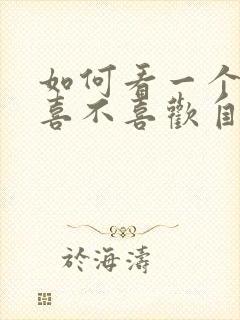 如何看一个
喜不喜歡自
於海濤